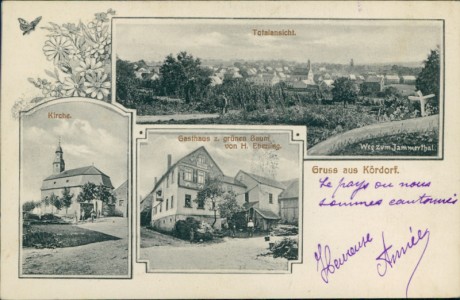 Totalansicht.
Kirche.
Gasthaus z. grünen Baum
von H.
Weg zum Jammerthal.
Gruss aus Kördorf.
Le pays ou nous
sommes cantonnés
Heureuse
Année